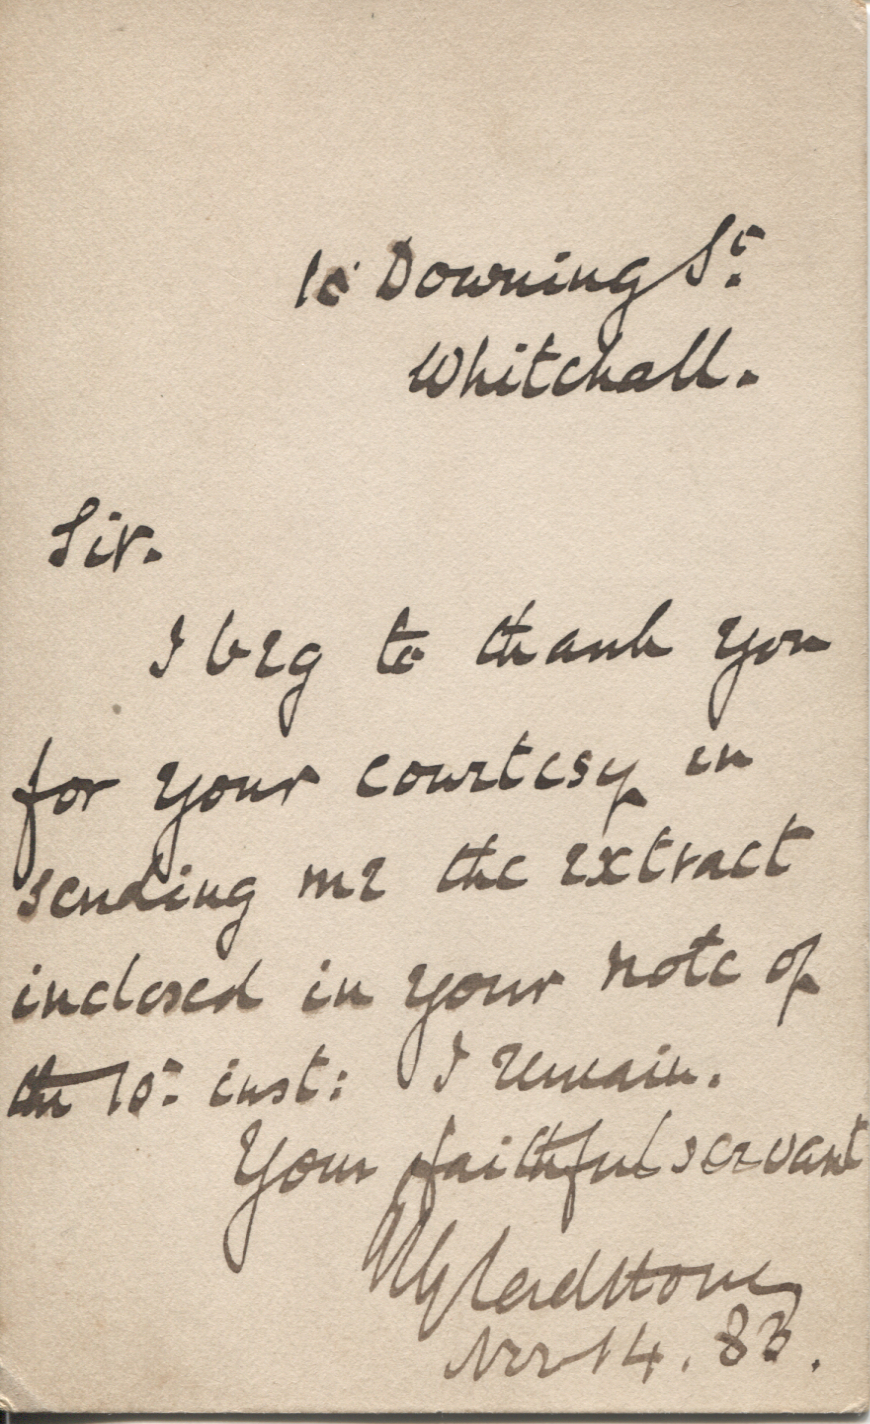 10 Downing St.
Whitehall.
Sir.
I beg to thank you
for your courtesy in
sending me the extract
inclosed in your note of
the 10th inst: I remain.
Your faithful servant
WGladstone
Nov 14. 83.